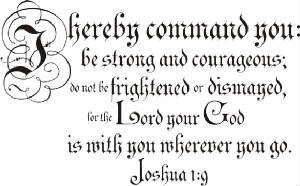 I hereby command you:
be strong and courageous;
do not be frightened or dismayed,
for the Lord your God
is with you wherever you go.
Joshua 1:9